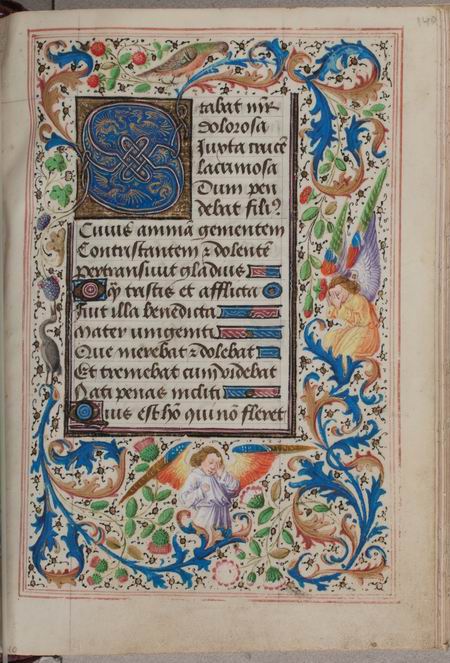 140
Stabat mr̄
Dolorosa
Juxta crucē
lacrimosa
Dum pen
debat filiꝰ
Cuius animā gementem
Contristantem ⁊ dolentē
pertransiuit gladius
O qͣ tristis et afflicta
fuit illa benedicta
Mater unigeniti
Que merebat ⁊ dolebat
Et tremebat cum videbat
Nati penas incliti
Quis est hō qui nō fleret